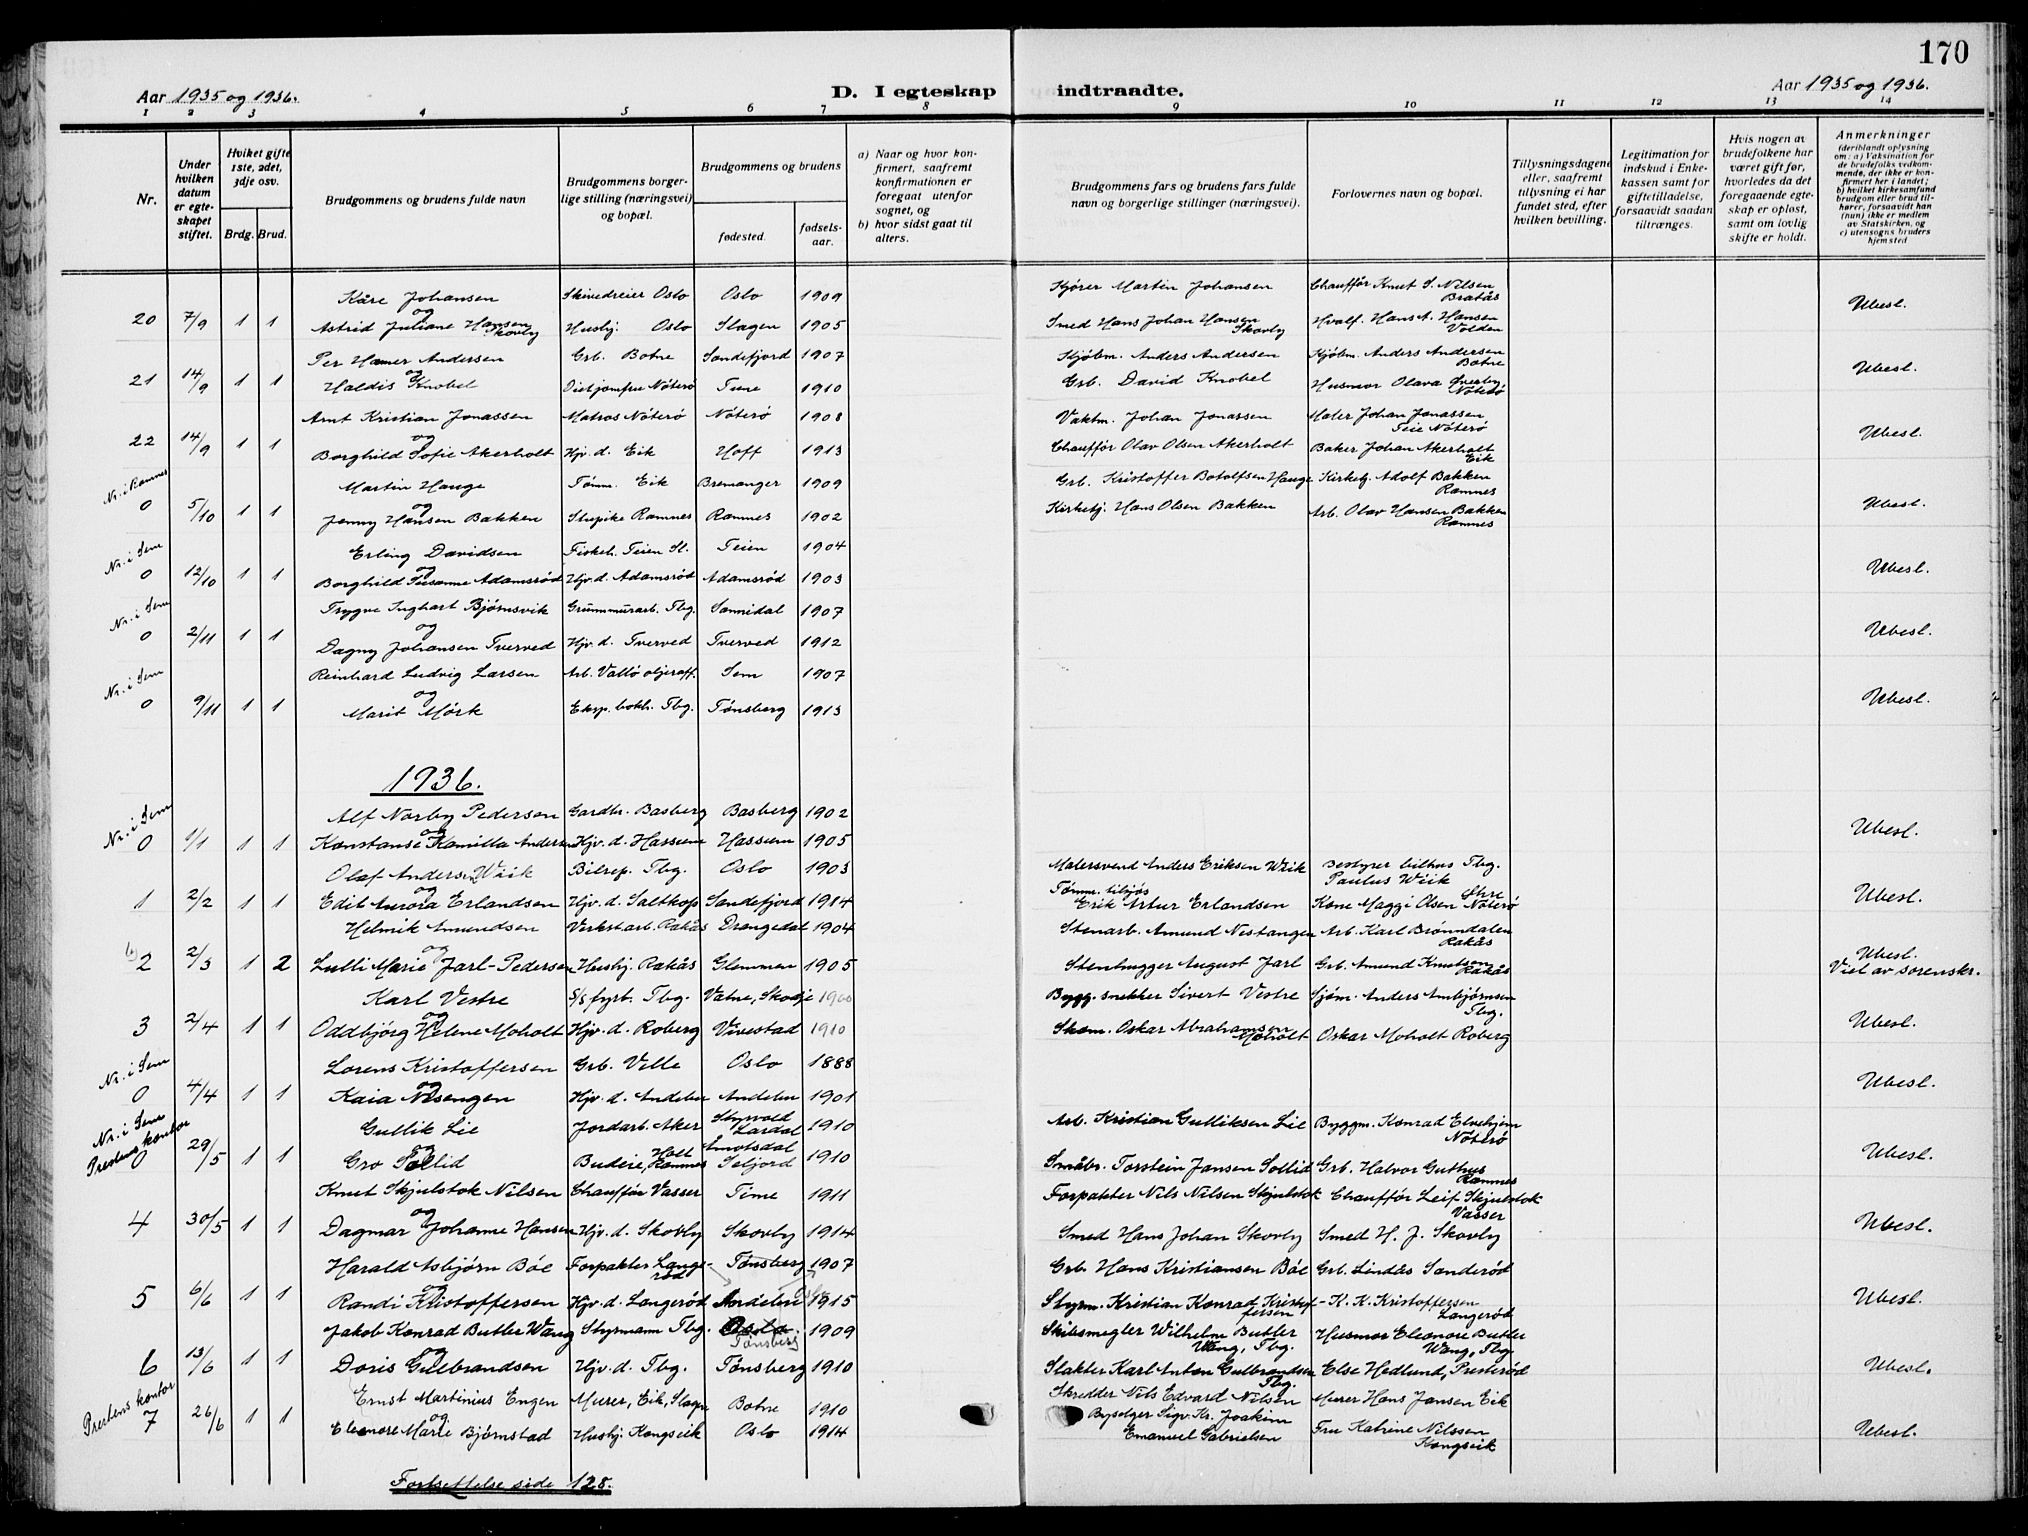 170
Aar 1935 og 1936.
D. I egteskap indtraadte.
Aar 1935 og 1936.
1 2 3 4 5 6 7 8 9 10 11 12 13 14
Nr.
Under hvilken datum er egteskapet stiftet.
Hviket gifte 1ste, 2det, 3dje osv.
Brdg. Brud.
Brudgommens og brudens fulde navn
Brudgommens borgerlige stilling (næringsvei) og bopæl.
Brudgommens og brudens
fødested.
fødselsaar.
a) Naar og hvor konfirmert, saafremt konfirmationen er foregaat utenfor sognet, og
b) hvor sidst gaat til alters.
Brudgommens fars og brudens fars fulde navn og borgerlige stillinger (næringsvei).
Forlovernes navn og bopæl.
Tillysningsdagene eller, saafremt tillysning ei har fundet sted, efter hvilken bevilling.
Legitimation for indskud i Enkekassen samt for giftetilladelse, forsaavidt saadan tiltrænges.
Hvis nogen av brudefolkene har været gift før, hvorledes da det foregaaende egteskap er opløst, samt om lovlig skifte er holdt.
Anmerkninger (deriblandt oplysning om: a) Vaksination for de brudefolks vedkommende, der ikke er konfirmert her i landet; b) hvilket kirkesamfund brudgom eller brud tilhører, forsaavidt han (hun) ikke er medlem av Statskirken, og c) utensogns bruders hjemsted
Kåre Johansen Oslo 1909 Kjører Martin Johansen Chauffør Knut S. Nilsen Bratås
20 7/9 1 1 og Astrid Juliane Hansen Skovly Husbj. Oslo Slagen 1905 Smed Hans Johan Hansen Skovly Hvalf. Hans A. Hansen Volden Ubesl.
Per Hamer Andersen Grb. Botne Sandefjord 1907 Skjølm. Anders Andersen Kjølm. Anders Andersen Botne
21 14/9 1 1 og Haldis Knobel Nøterø Tune 1910 Grb. David Knobel Husmor Olava Nøterø Ubesl.
Arnt Kristian Jonassen Matros Nøterø Nøterø 1908 Vaktm. Johan Jonassen Maler Johan Jonassen Teie Nøterø
22 14/9 1 1 og Borghild Sofie Akerholt Hjv. d. Eik Hoff 1913 Chauffør Olav Olsen Akerholt Baker Johan Akerholt Eik Ubesl.
Martin Hauge Tømm. Eik Bremanger 1909 Grb. Kristoffer Botolfsen Hauge Kirketj. Adolf Bakken Ramnes
Nr. i Ramnes 0 5/10 1 1 og Jenny Hansen Bakken Ramnes Ramnes 1902 Kirketj. Hans Olsen Bakken Arb. Olav Hansen Bakken Ramnes Ubesl.
Erling Davidsen Fiskeh. Teien Sl. Teien 1904
Nr. i Sem 0 12/10 1 1 og Borghild Susanne Adamsrød Hjv. d. Adamsrød Adamsrød 1903 Ubesl.
Trygve Inghart Bjørnsvik Grunnmurarb. Tbg. Sannidal 1907
Nr. i Sem 0 2/11 1 1 og Dagny Johansen Tverved Hjv. d. Tverved Tverved 1912 Ubesl.
Reinhard Ludvig Larsen Arb. Vallø oljeraff. Sem 1907
Nr. i Sem 0 9/11 1 1 og Marit Mørk Eksp. bokh. Tbg. Tønsberg 1913 Ubesl.
1936.
Alf Norby Pedersen Gardbr. Basberg Basberg 1902
Nr. i Sem 0 1/1 1 1 og Konstanse Kamilla Andersen Hjv. d. Hassum Hassum 1905 Ubesl.
Olaf Andersen Wiik Bilrep. Tbg. Oslo 1903 Malersvend Anders Eriksen Wiik Bestyrer bilhus Tbg. Paulus Wiik
1 2/2 1 1 og Edit Aurora Erlandsen Hjv. d. Saltkop Sandefjord 1914 Tømm. tilsjøs Erik Artur Erlandsen Kone Maggi Olsen Nøterø Ubesl.
Helmik Amundsen Verkstarb. Rakås Drangedal 1904 Stenarb. Amund Nestangen Arb. Karl Brønndalen Rakås
2 2/3 1 2 og Lulli Marie Jarl-Pedersen Husbj. Rakås Glemmen 1905 Stenhugger August Jarl Grb. Amund Knutsen Rakås Ubesl. Viet av sorenskr.
Karl Vestre S/s fyrb. Tbg. Vatne, Skodje 1900 Bygg. snekker Sivert Vestre Sjøm. Anders Ambjørnsen Tbg.
3 2/4 1 1 og Oddbjørg Helene Moholt Hjv. d. Roberg Vivestad 1910 Skom. Oskar Abrahamsen Moholt Oskar Moholt Roberg Ubesl.
Lorens Kristoffersen Grb. Velle Oslo 1888
Nr. i Sem 0 4/4 1 1 og Kaia Nesengen Hjv. d. Andebu Andebu 1901 Ubesl.
Gullik Lie Jordarb. Aker Styrvold Lardal 1910 Arb. Kristian Gulliksen Lie Byggm. Konrad Elvehjem Nøterø
Nr. i Sem Prestens kontor 0 29/5 1 1 og Gro Sollid Budeie, Holt Ramnes Åmotsdal Seljord 1910 Småbr. Torstein Jansen Sollid Grb. Halvor Guthus Ramnes Ubesl.
Knut Skjulstok Nilsen Chauffør Vasser Time 1911 Forpakter Nils Nilsen Skjulstok Chauffør Leif Skjulstok Vasser
4 30/5 1 1 og Dagmar Johanne Hansen Hjv. d. Skovly Skovly 1914 Smed Hans Johan Skovly Smed H. J. Skovly Ubesl.
Harald Asbjørn Bøe Forpakter Langerød Tønsberg 1907 Grb. Hans Kristiansen Bøe Grb. Lindås Sanderød
5 6/6 1 1 og Randi Kristoffersen Hjv. d. Langerød 1915 Styrm. Kristian Konrad Kristoffersen K. K. Kristoffersen Langerød Ubesl.
Jakob Konrad Butler Wang Styrmann Tbg. Oslo Tønsberg 1909 Skibsmegler Wilhelm Butler Wang, Tbg. Husmor Eleonore Butler Wang, Tbg.
6 13/6 1 1 og Doris Gulbrandsen Hjv. d. Tbg. Tønsberg 1910 Slakter Karl Anton Gulbrandsen Tbg. Else Hedlund, Presterød Ubesl.
Ernst Martinius Engen Murer, Eik, Slagen Botne 1910 Skredder Nils Edvard Nilsen Murer Hans Jansen Eik
Prestens kontor 7 26/6 1 1 og Eleonore Marie Bjørnstad Husbj. Kongseik Oslo 1914 Byselger Sigv. Kr. Joakim Emanuel Gabrielsen Fru Katrine Nilssen Kongseik Ubesl.
Fortsettelse side 128.